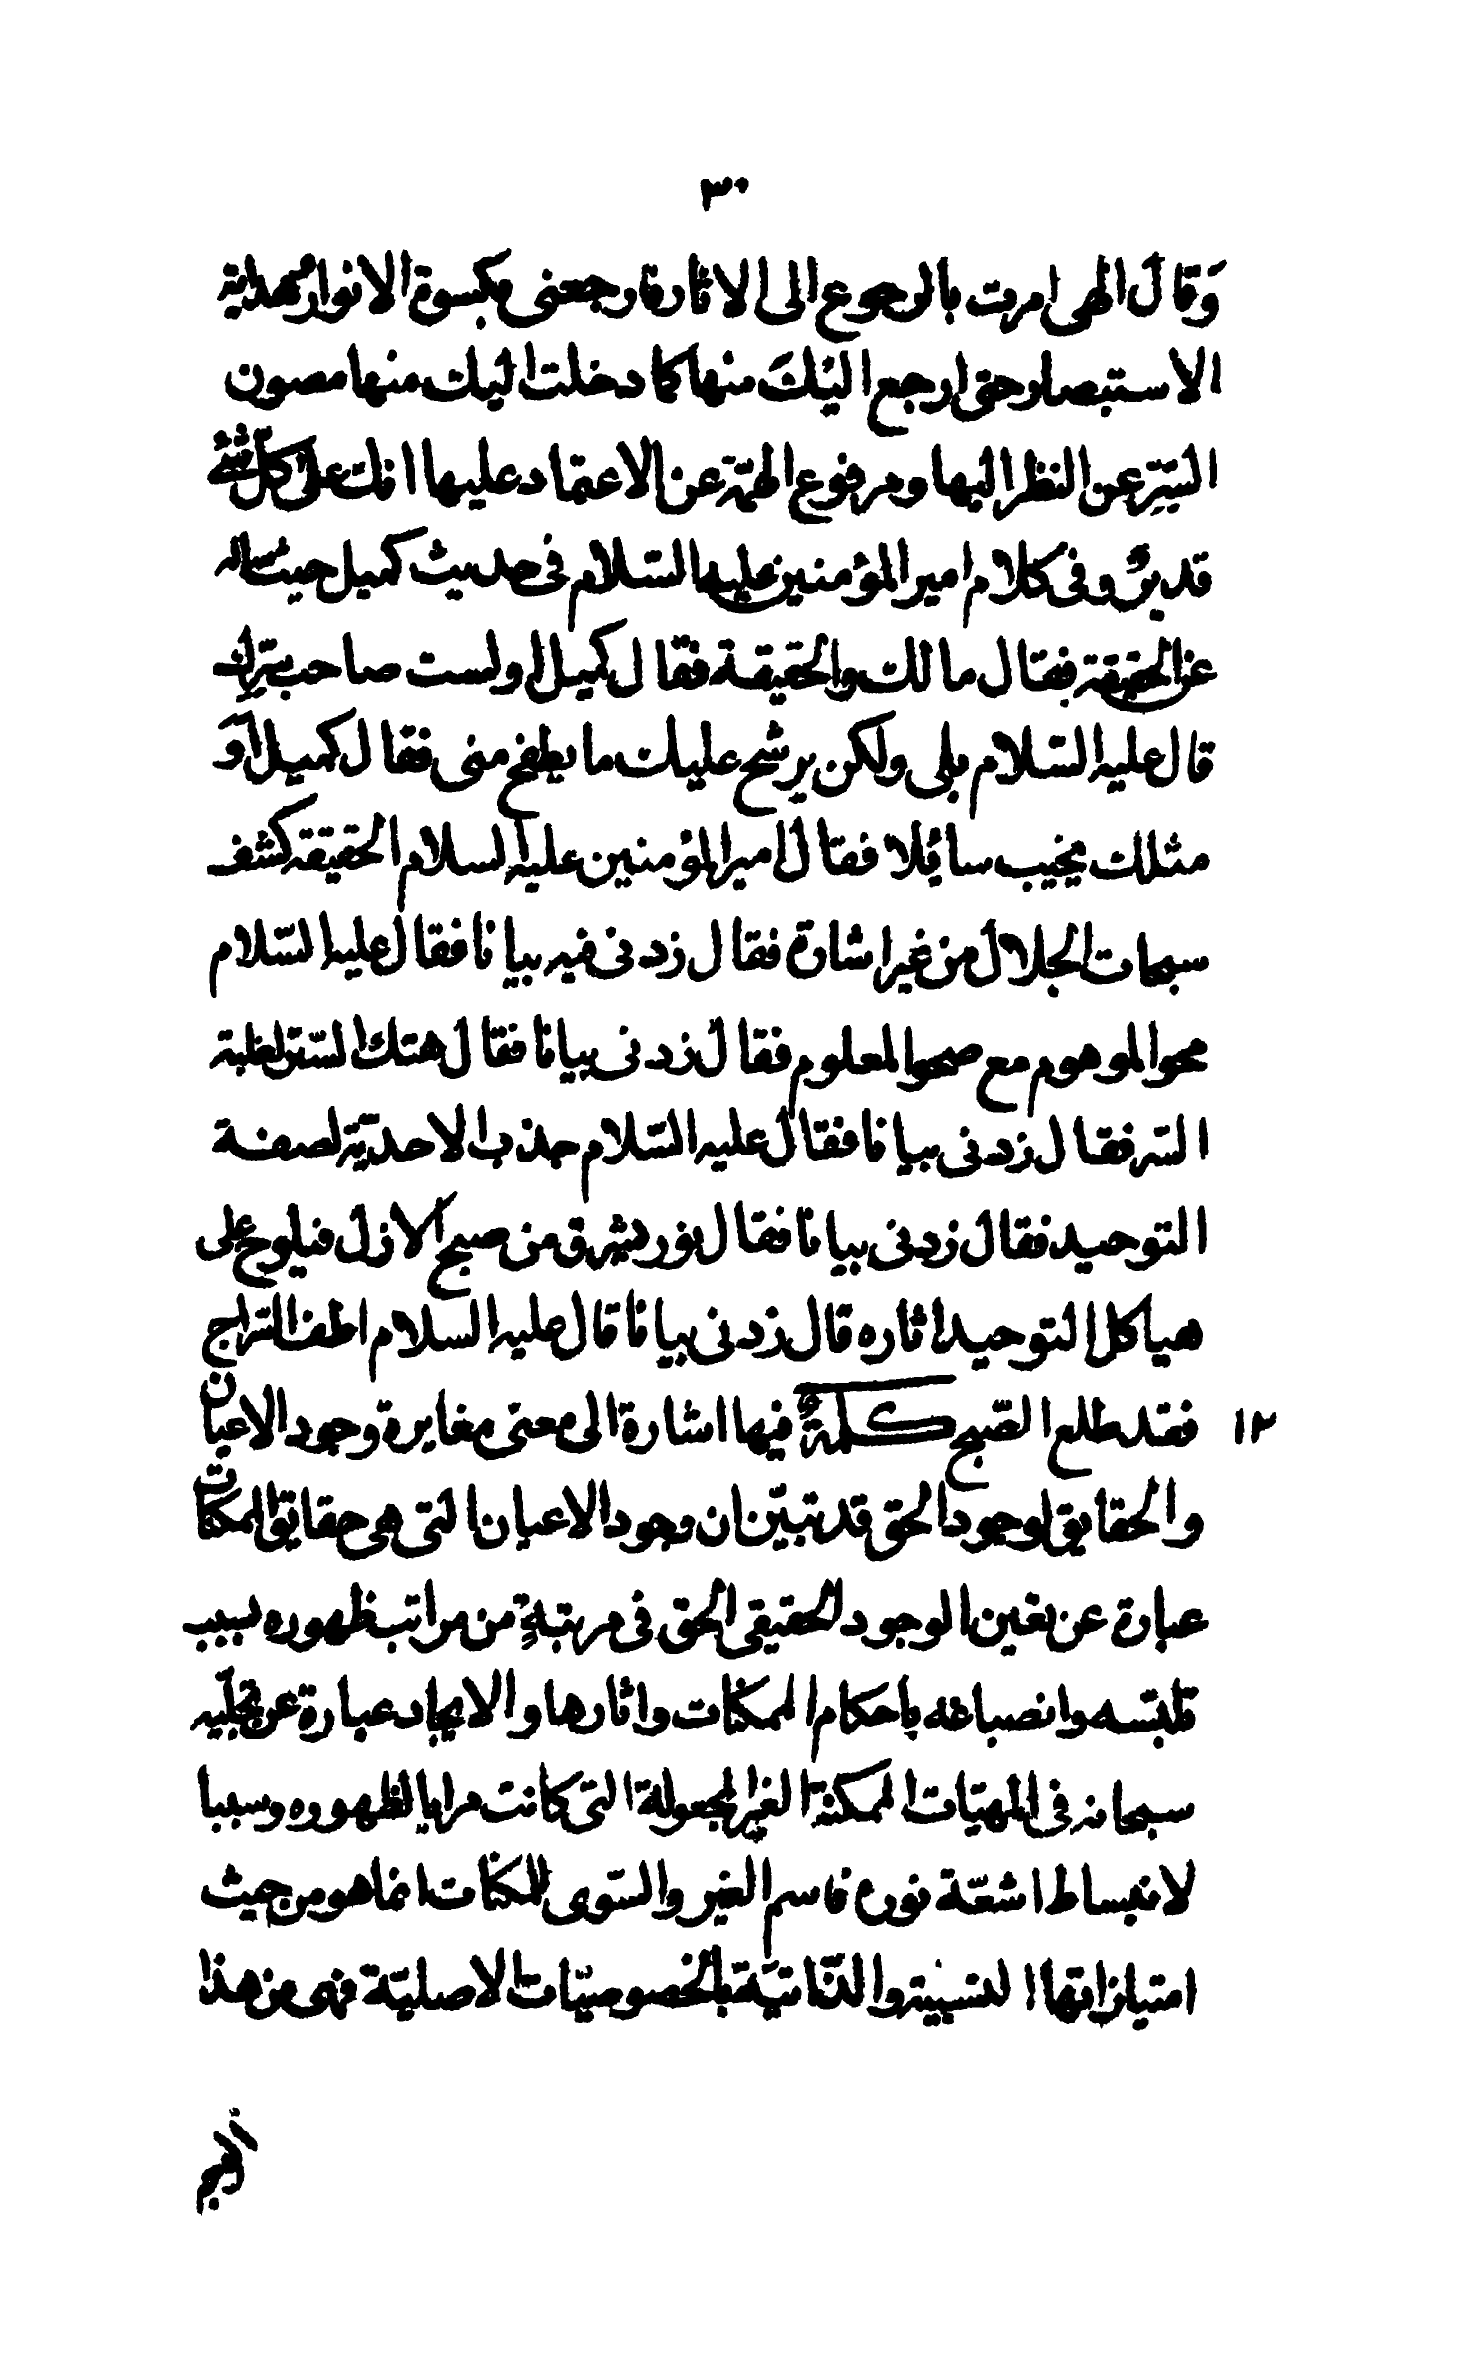 ٣٠
وَقال الهی امرت بالرجوع الی الاثار فارجعنی بکسوة الانوار وهدایة
الاستبصار حتی ارجع الیکَ منها کما دخلت الیك منها مصون
السّرِ عن النظر الیها ومرفوع الهمّة عن الاعتماد علیها انك علی کل شئ
قدیرٌ وفی کلام امیر المؤمنین علیه السّلام فی حدیث کمیل حیث ساله
عن الحقیقة فقال مالك والحقیقة فقال کمیل اولست صاحب سّرك
قال علیه السّلام بلی ولکن یرشح علیك ما یطفح منی فقال کمیل اَوَ
مثلك یخیب سائلا فقال امیر المؤمنین علیه السلام الحقیقة کشف
سبحات الجلال من غیر اشارة فقال زدنی فیه بیانا فقال علیه السّلام
محو الموهوم مع صحو المعلوم فقال زدنی بیانا فقال هتك السّتر لغلبة
السّر فقال زدنی بیانا فقال علیه السّلام جذب الاحدیّة لصفة
التوحید فقال زدنی بیانا فقال نور یشرق من صبح الازل فیلوح علی
هیاکل التوحید اثاره قال زدنی بیانا قال علیه السلام اطف السّراج
١٢ فقد طلع الصّبح کلمةٌ فیها اشارة الی معنی مغایرة وجود الاعیان
والحقایق لوجود الحق قد تبیّن ان وجود الاعیان التی هی حقایق الممکنات
عبارة عن تعین الوجود الحقیقی الحق فی مرتبةٍ من مراتب ظهوره بسبب
تلبّسه وانصباغه باحکام الممکنات واثارها والایجاد عبارة عن تجلّیه
سبحانه فی المهیّات الممکنة الغیر المجعولة التی کانت مرایا لظهوره وسببا
لانبساط اشعّة نوره فاسم الغیر والسّوی للمکنات انما هو من حیث
امتیازاتها النسبیة والذّاتیّة بالخصوصیّات الاصلیّة فهی من هذا